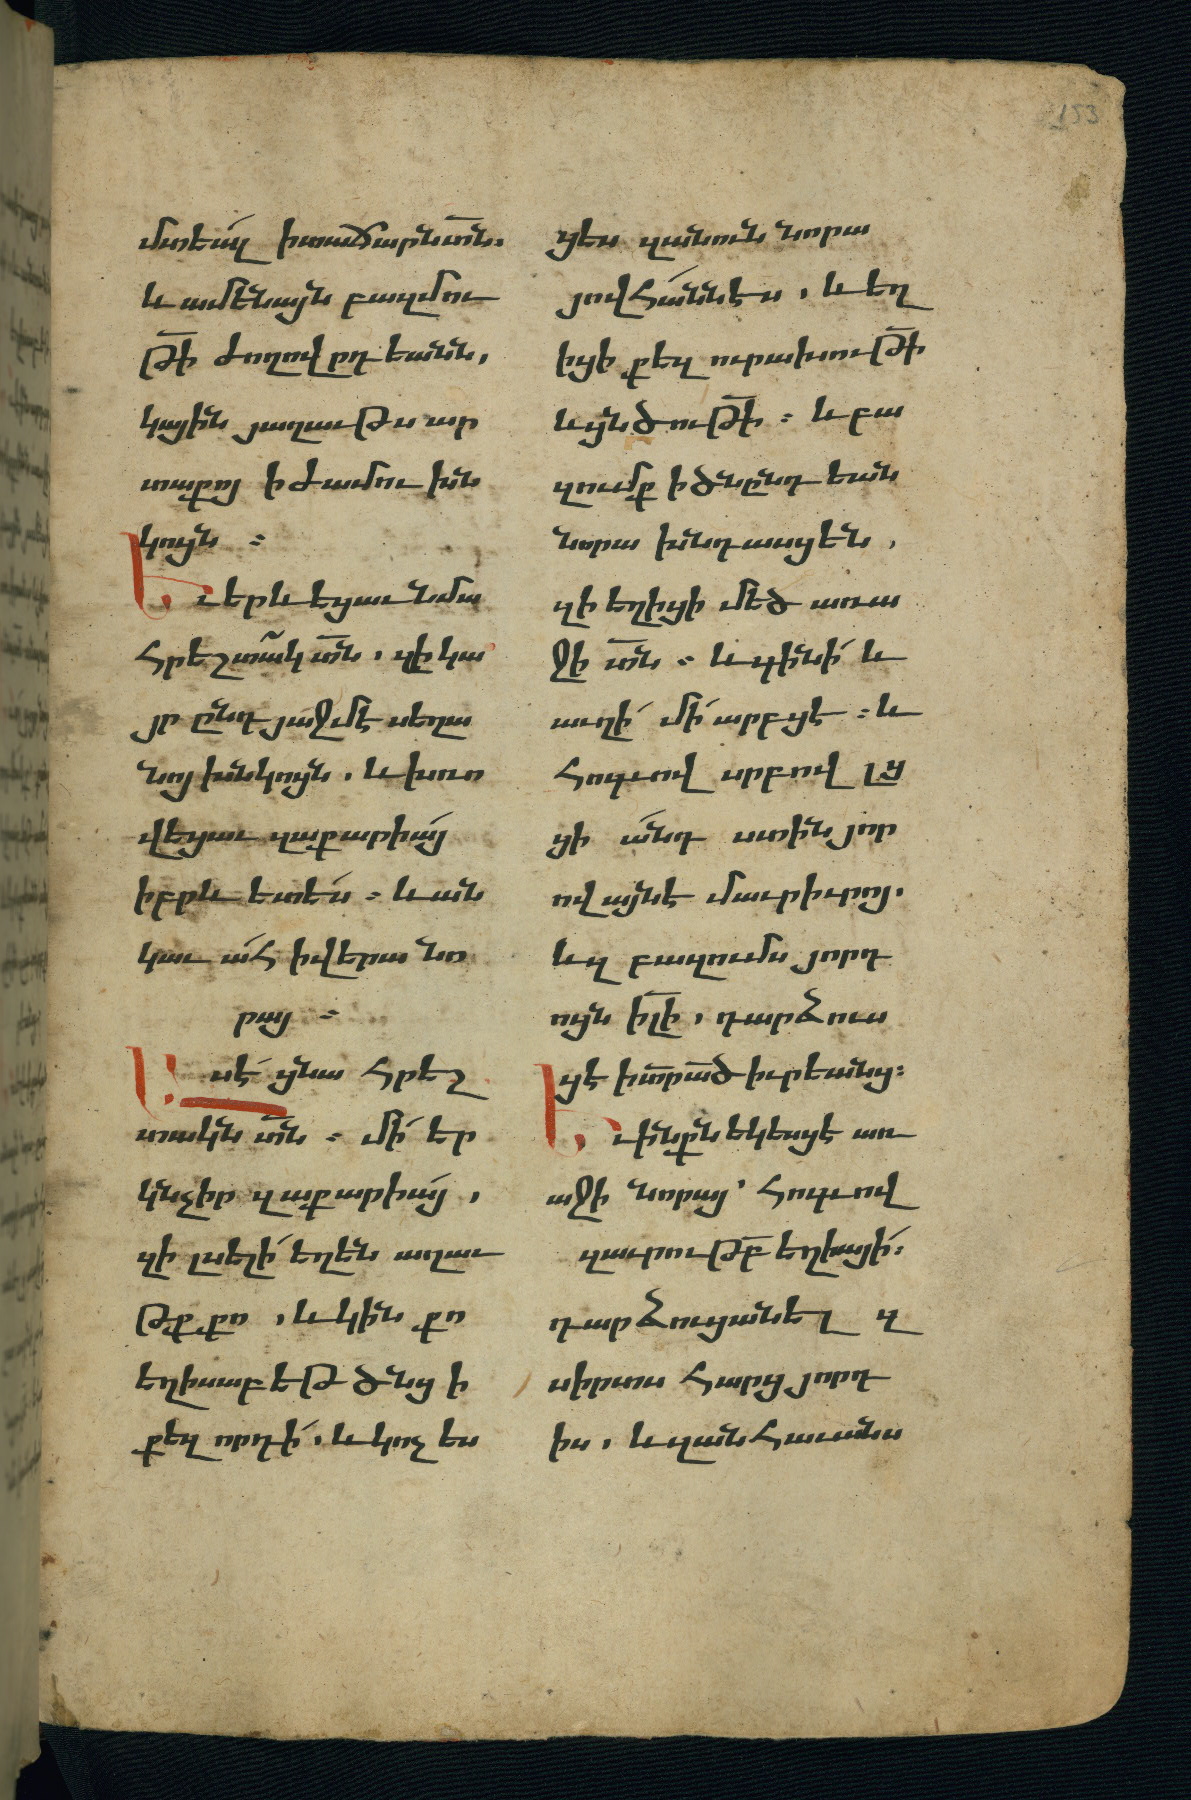 153
մտեալ ի տաճարն տն.
և ամենայն բազմու
թի ժողովրդեանն,
կային յաղաւթս ար
տաքոյ ի ժամու խն
կոյն ։
Եւ երևեցաւ նմա
հրեշտակ տն, զի կա
յր ընդ յաջմէ սեղա
նոյ խնկոյն, և խռո
վեցաւ զաքարիայ
իբրև ետես ։ և ան
կաւ ահ ի վերա նո
րայ ։
Ասէ ցնա հրեշ
տակն տն ։ մի եր
կնչիր զաքարիայ,
զի լսելի եղեն աղաւ
թք քո, և կին քո
եղիսաբեթ ծնցի
քեզ որդի, և կոչես
ցես զանուն նորա
յովհաննէս, և եղ
իցի քեզ ուրախութի
և ցնծութի ։ և բա
զումք ի ծնընդեան
նորա խնդասցեն,
զի եղիցի մեծ առա
ջի տն ։ և գինի և
աւղի մի արբցէ ։ և
հոգւով սրբով լց
ցի անդ ստին յոր
ովայնէ մաւրիւրոյ.
և զբազումս յորդ
ոյն իլի, դարձուս
ցէ ի տր ած իւրեանց։
Եւ ինքն եկեսցէ առ
աջի նորայ՝ հոգւով
զաւրութբ եղիայի։
դարձուցանել զ
սիրտս հարց յորդ
իս, և զանհաւանս